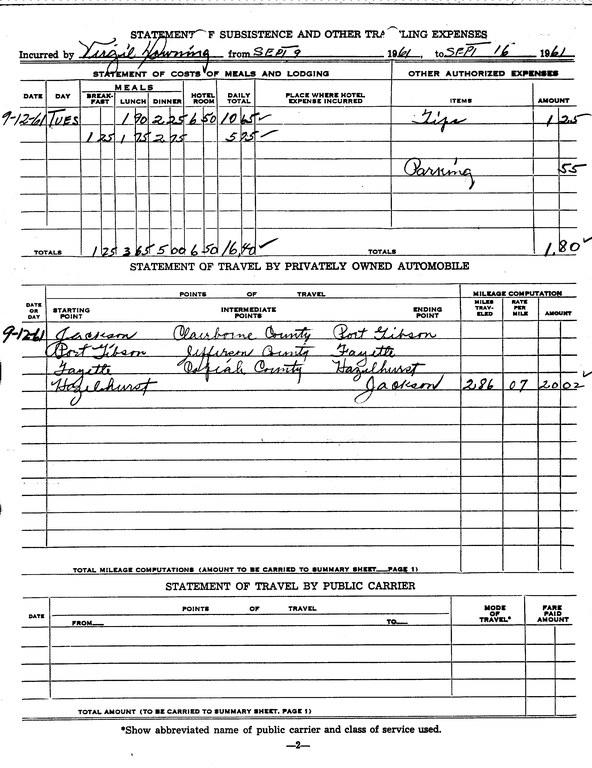 STATEMENT OF SUBSISTENCE AND OTHER TRAVELING EXPENSES
Incurred by Virgil Downing from SEPT. 9 1961, to SEPT 16 1961
STATEMENT OF COSTS OF MEALS AND LODGING OTHER AUTHORIZED EXPENSES
DATE DAY MEALS BREAK-FAST LUNCH DINNER HOTEL ROOM DAILY TOTAL PLACE WHERE HOTEL EXPENSE INCURRED ITEMS AMOUNT
9-12-61 TUES 1 90 2 25 6 50 10 65 ✓ Tips 1 25
1 25 1 75 2 75 5 75 ✓
Parking 55
TOTALS 1 25 3 65 5 00 6 50 16,40 ✓ TOTALS 1.80 ✓
STATEMENT OF TRAVEL BY PRIVATELY OWNED AUTOMOBILE
POINTS OF TRAVEL MILEAGE COMPUTATION
DATE OR DAY STARTING POINT INTERMEDIATE POINTS ENDING POINT MILES TRAV-ELED RATE PER MILE AMOUNT
9-12-61 Jackson Claiborne County Port Gibson
Port Gibson Jefferson County Fayette
Fayette Copiah County Hazelhurst
Hazelhurst Jackson 286 07 20 02 ✓
TOTAL MILEAGE COMPUTATIONS (AMOUNT TO BE CARRIED TO SUMMARY SHEET PAGE 1)
STATEMENT OF TRAVEL BY PUBLIC CARRIER
DATE POINTS OF TRAVEL MODE OF TRAVEL* FARE PAID AMOUNT
FROM TO
TOTAL AMOUNT (TO BE CARRIED TO SUMMARY SHEET. PAGE 1)
*Show abbreviated name of public carrier and class of service used.
—2—